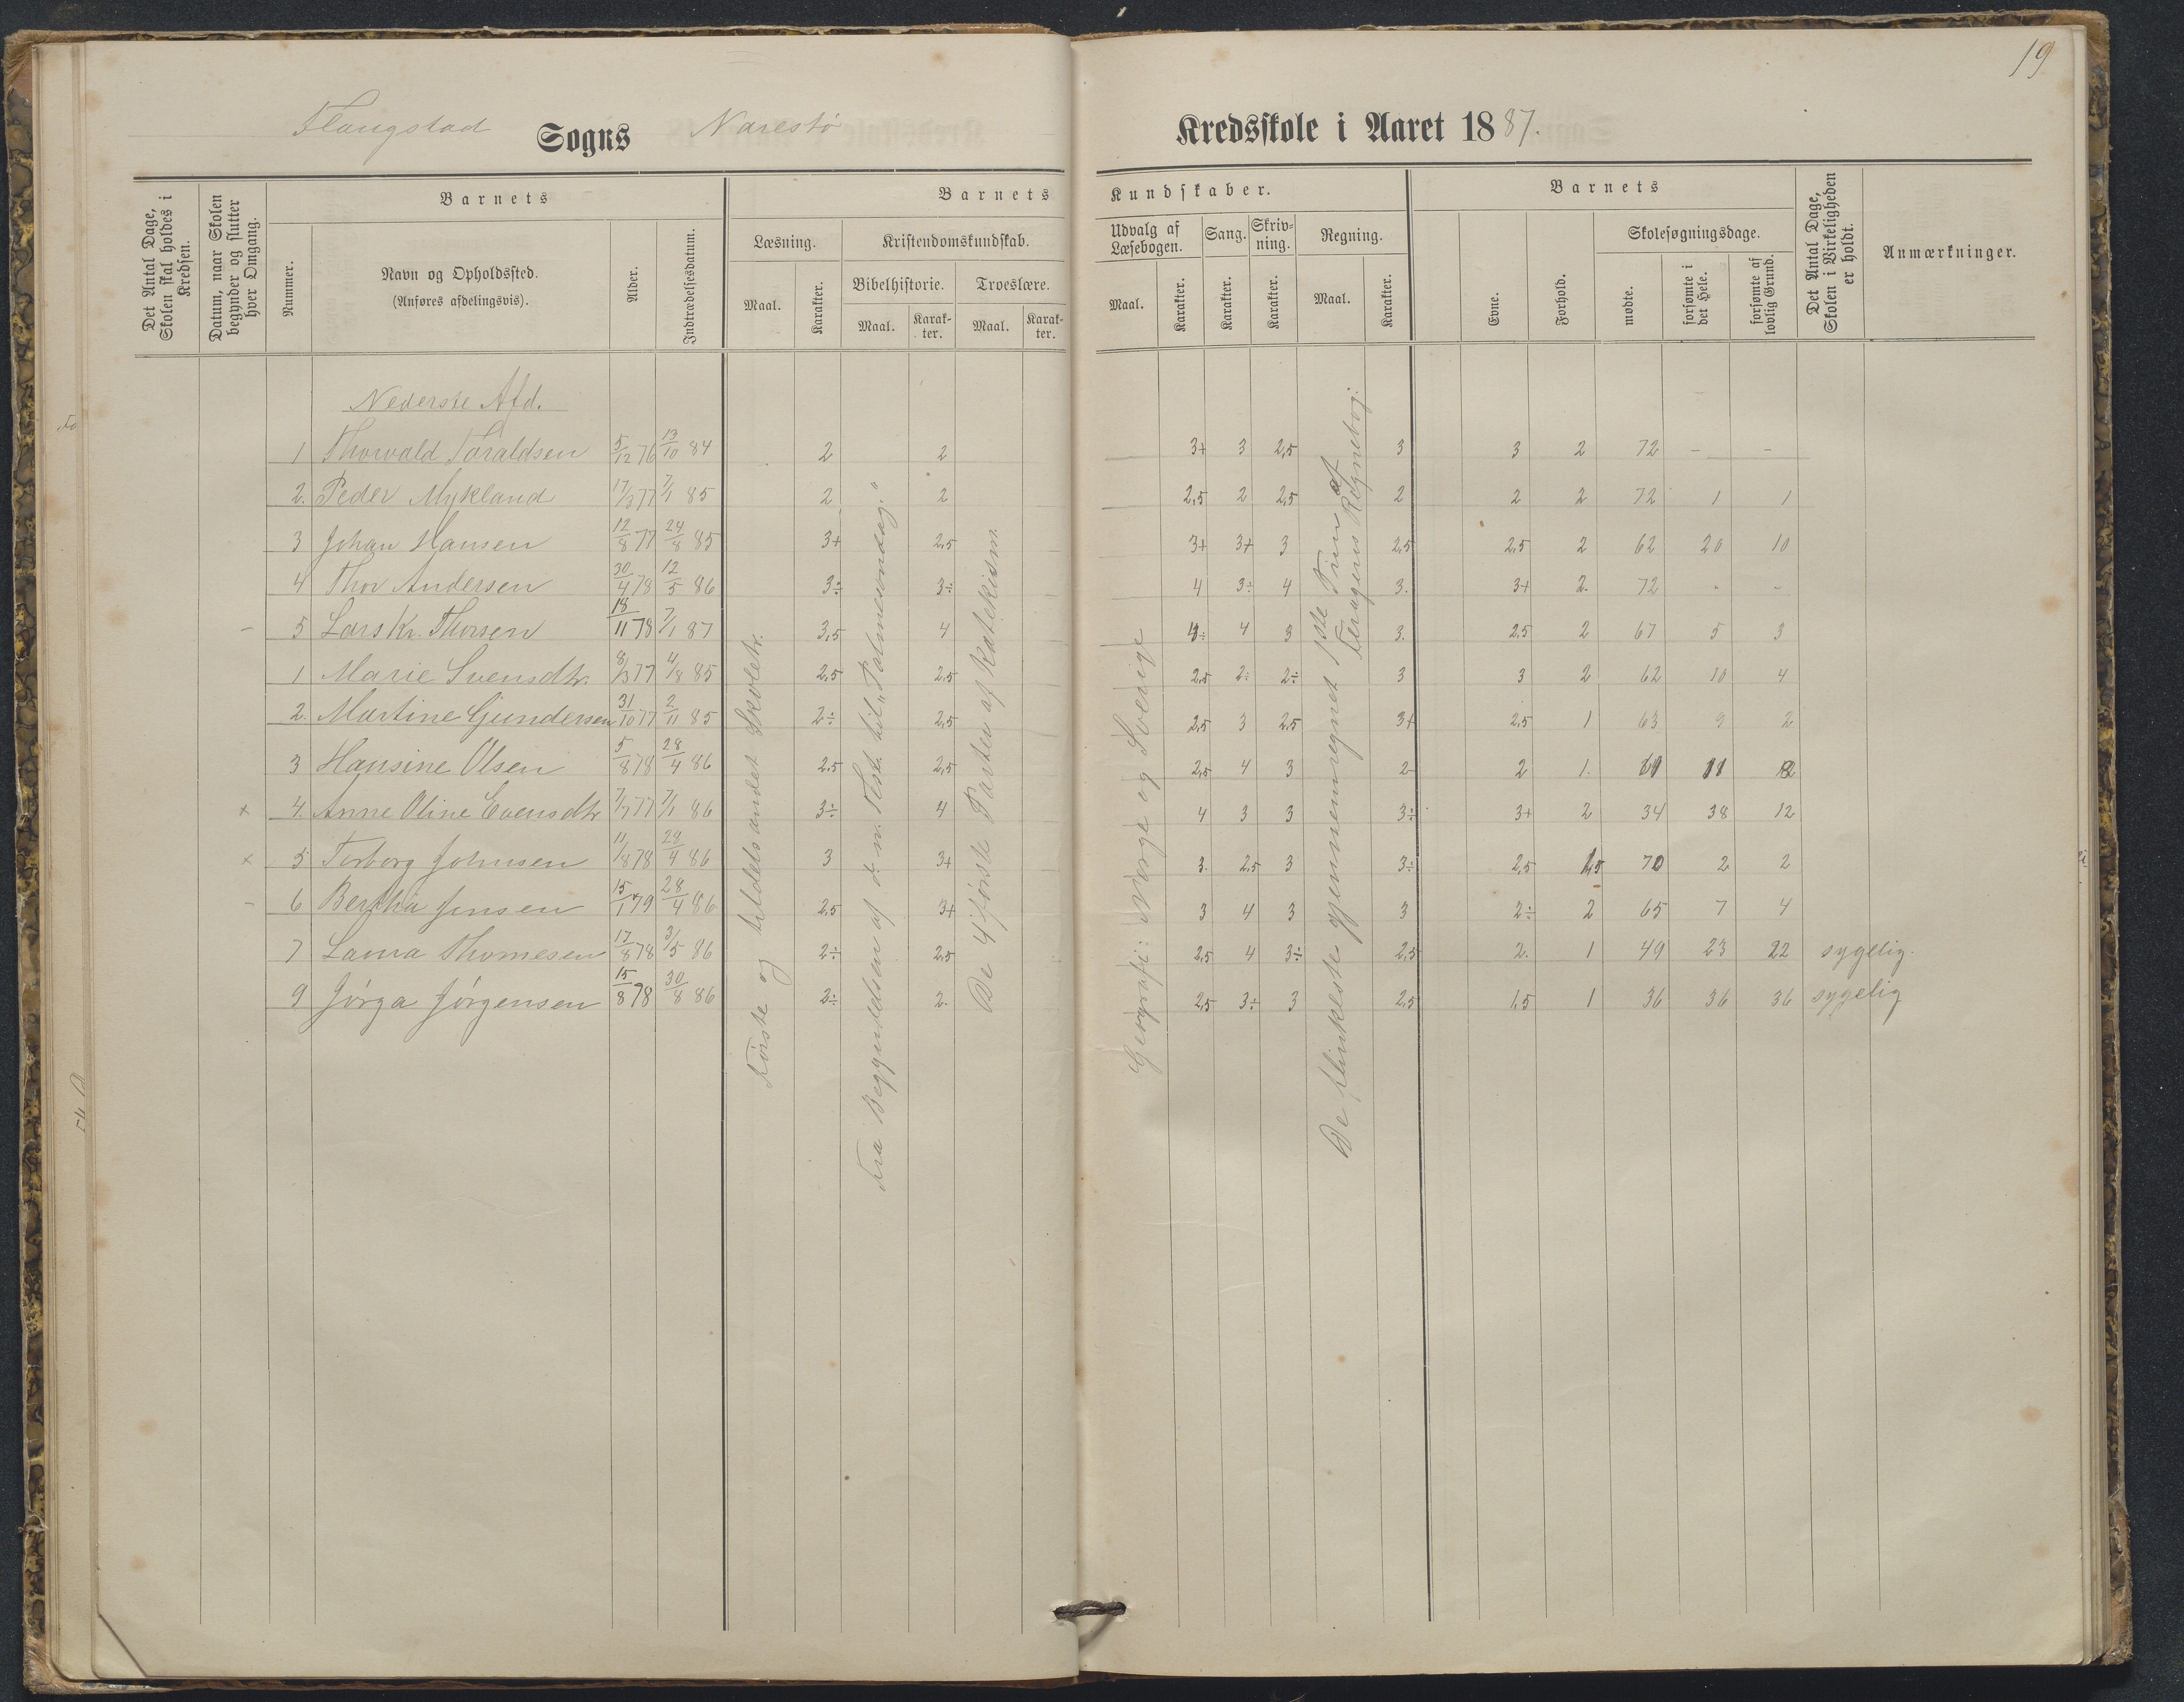 19
Flaugstad Sogns Narestø Kredsskole i Aaret 1887.
Det Antal Dage, Skolen skal holdes i Kredsen.
Datum, naar Skolen begynder og slutter hver Omgang.
Barnets
Nummer.
Navn og Opholdssted.
(Anføres afdelingsvis).
Alder.
Indtrædelsesdatum.
Barnets Kundskaber.
Læsning.
Maal.
Karakter.
Kristendomskundskab.
Bibelhistorie.
Maal.
Karak-
ter.
Troeslære.
Maal.
Karak-
ter.
Udvalg af
Læsebogen.
Maal.
Karakter.
Sang.
Karakter.
Skriv-
ning.
Karakter.
Regning.
Maal.
Karakter.
Barnets
Evne.
Forhold.
Skolesøgningsdage.
mødte.
forsømte i det Hele.
forsømte af lovlig Grund.
Det Antal Dage, Skolen i Virkeligheden er holdt.
Anmærkninger.
Nederste Afd.
1 Thorvald Taraldsen 5/12 76 13/10 84 2 2 3+ 3 2,5 3 3 2 72 - -
2. Peder Mykland 17/3 77 7/1 85 2 2 2,5 2 2,5 2 2 2 72 1 1
3 Johan Hansen 12/8 77 24/8 85 3+ 2,5 3+ 3+ 3 2,5 2,5 2 62 20 10
4 Thor Andersen 30/4 78 12/5 86 3÷ 3÷ 4 3÷ 4 3. 3+ 2. 72 - -
- 5 Lars Kr. Thorsen 18/11 78 7/1 87 3,5 4 4÷ 4 3 3. 2,5 2 67 5 3
1 Marie Svensdtr. 8/3 77 4/8 85 2,5 2,5 2,5 2÷ 2÷ 3 3 2 62 10 4
2. Martine Gundersen 31/10 77 2/11 85 2÷ 2,5 2,5 3 2,5 3+ 2,5 1 63 9 2
3 Hansine Olsen 5/8 78 28/4 86 2,5 2,5 2,5 4 3 2- 2 1. 61 11
x 4. Anne Oline Evensdtr 7/7 77 7/1 86 3÷ 4 4 3 3 3÷ 3+ 2 34 38 12
x 5 Torborg Johnsen 11/8 78 29/4 86 3 3+ 3. 2,5 3 3÷ 2,5 1,5 70 2 2
- 6 Bertha Jensen 15/1 79 28/4 86 2,5 3+ 3 4 3 3 2÷ 2 65 7 4
7 Laura Thomesen 17/8 78 3/5 86 2÷ 2,5 2,5 4 3÷ 2,5 2. 1 49 23 22 sygelig.
9 Jørga Jørgensen 15/8 78 30/8 86 2÷ 2. 2,5 3÷ 3 2,5 1,5 1 36 36 36 sygelig
Første og tildels andet Skoletr.
Fra Begyndelsen af d. n. Test. til „Palmesøndag."
De 4 første Parter af Katekism.
Geografi: Norge og Sverige
De flinkeste gjennemregnet 1ste Trin af
Feragens Regnebog.